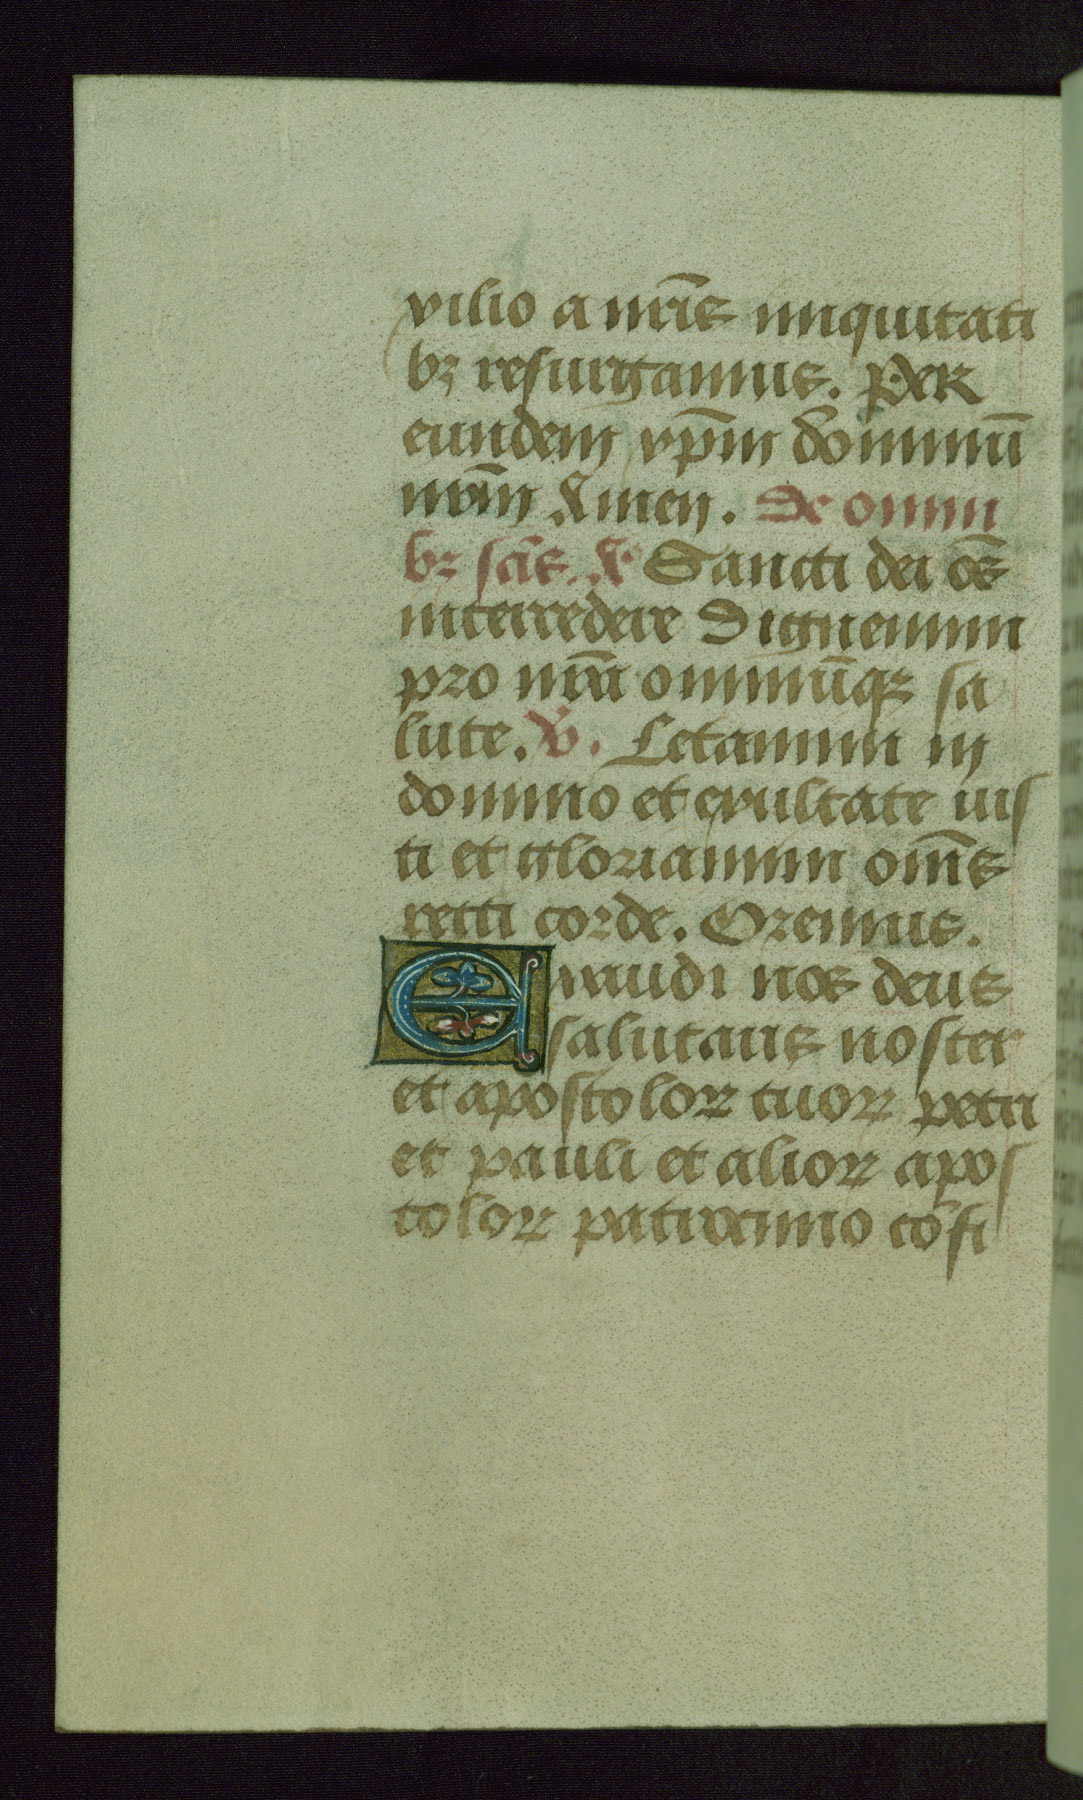 xilio a nr̄is iniquitati
bꝫ resurgamus. Per
eundem xp̄m dominū
nr̄m Amen. De omni
bꝫ scīs. A Sancti dei oēs
intercedere Dignemini
pro nr̄a omniūqꝫ sa
lute. V̄. Letamini in
domino et exultate ius
ti et gloriamini om̄s
recti corde. Oremus.
Exaudi nos deus
salutaris noster
et apostoloꝝ tuoꝝ petri
et pauli et alioꝝ apos
toloꝝ patrocinio cōfi